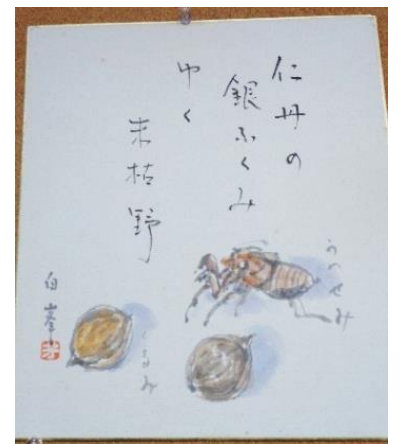 仁丹の
銀ふくみ
ゆく
末枯野
うつせみ
くるみ
白峯